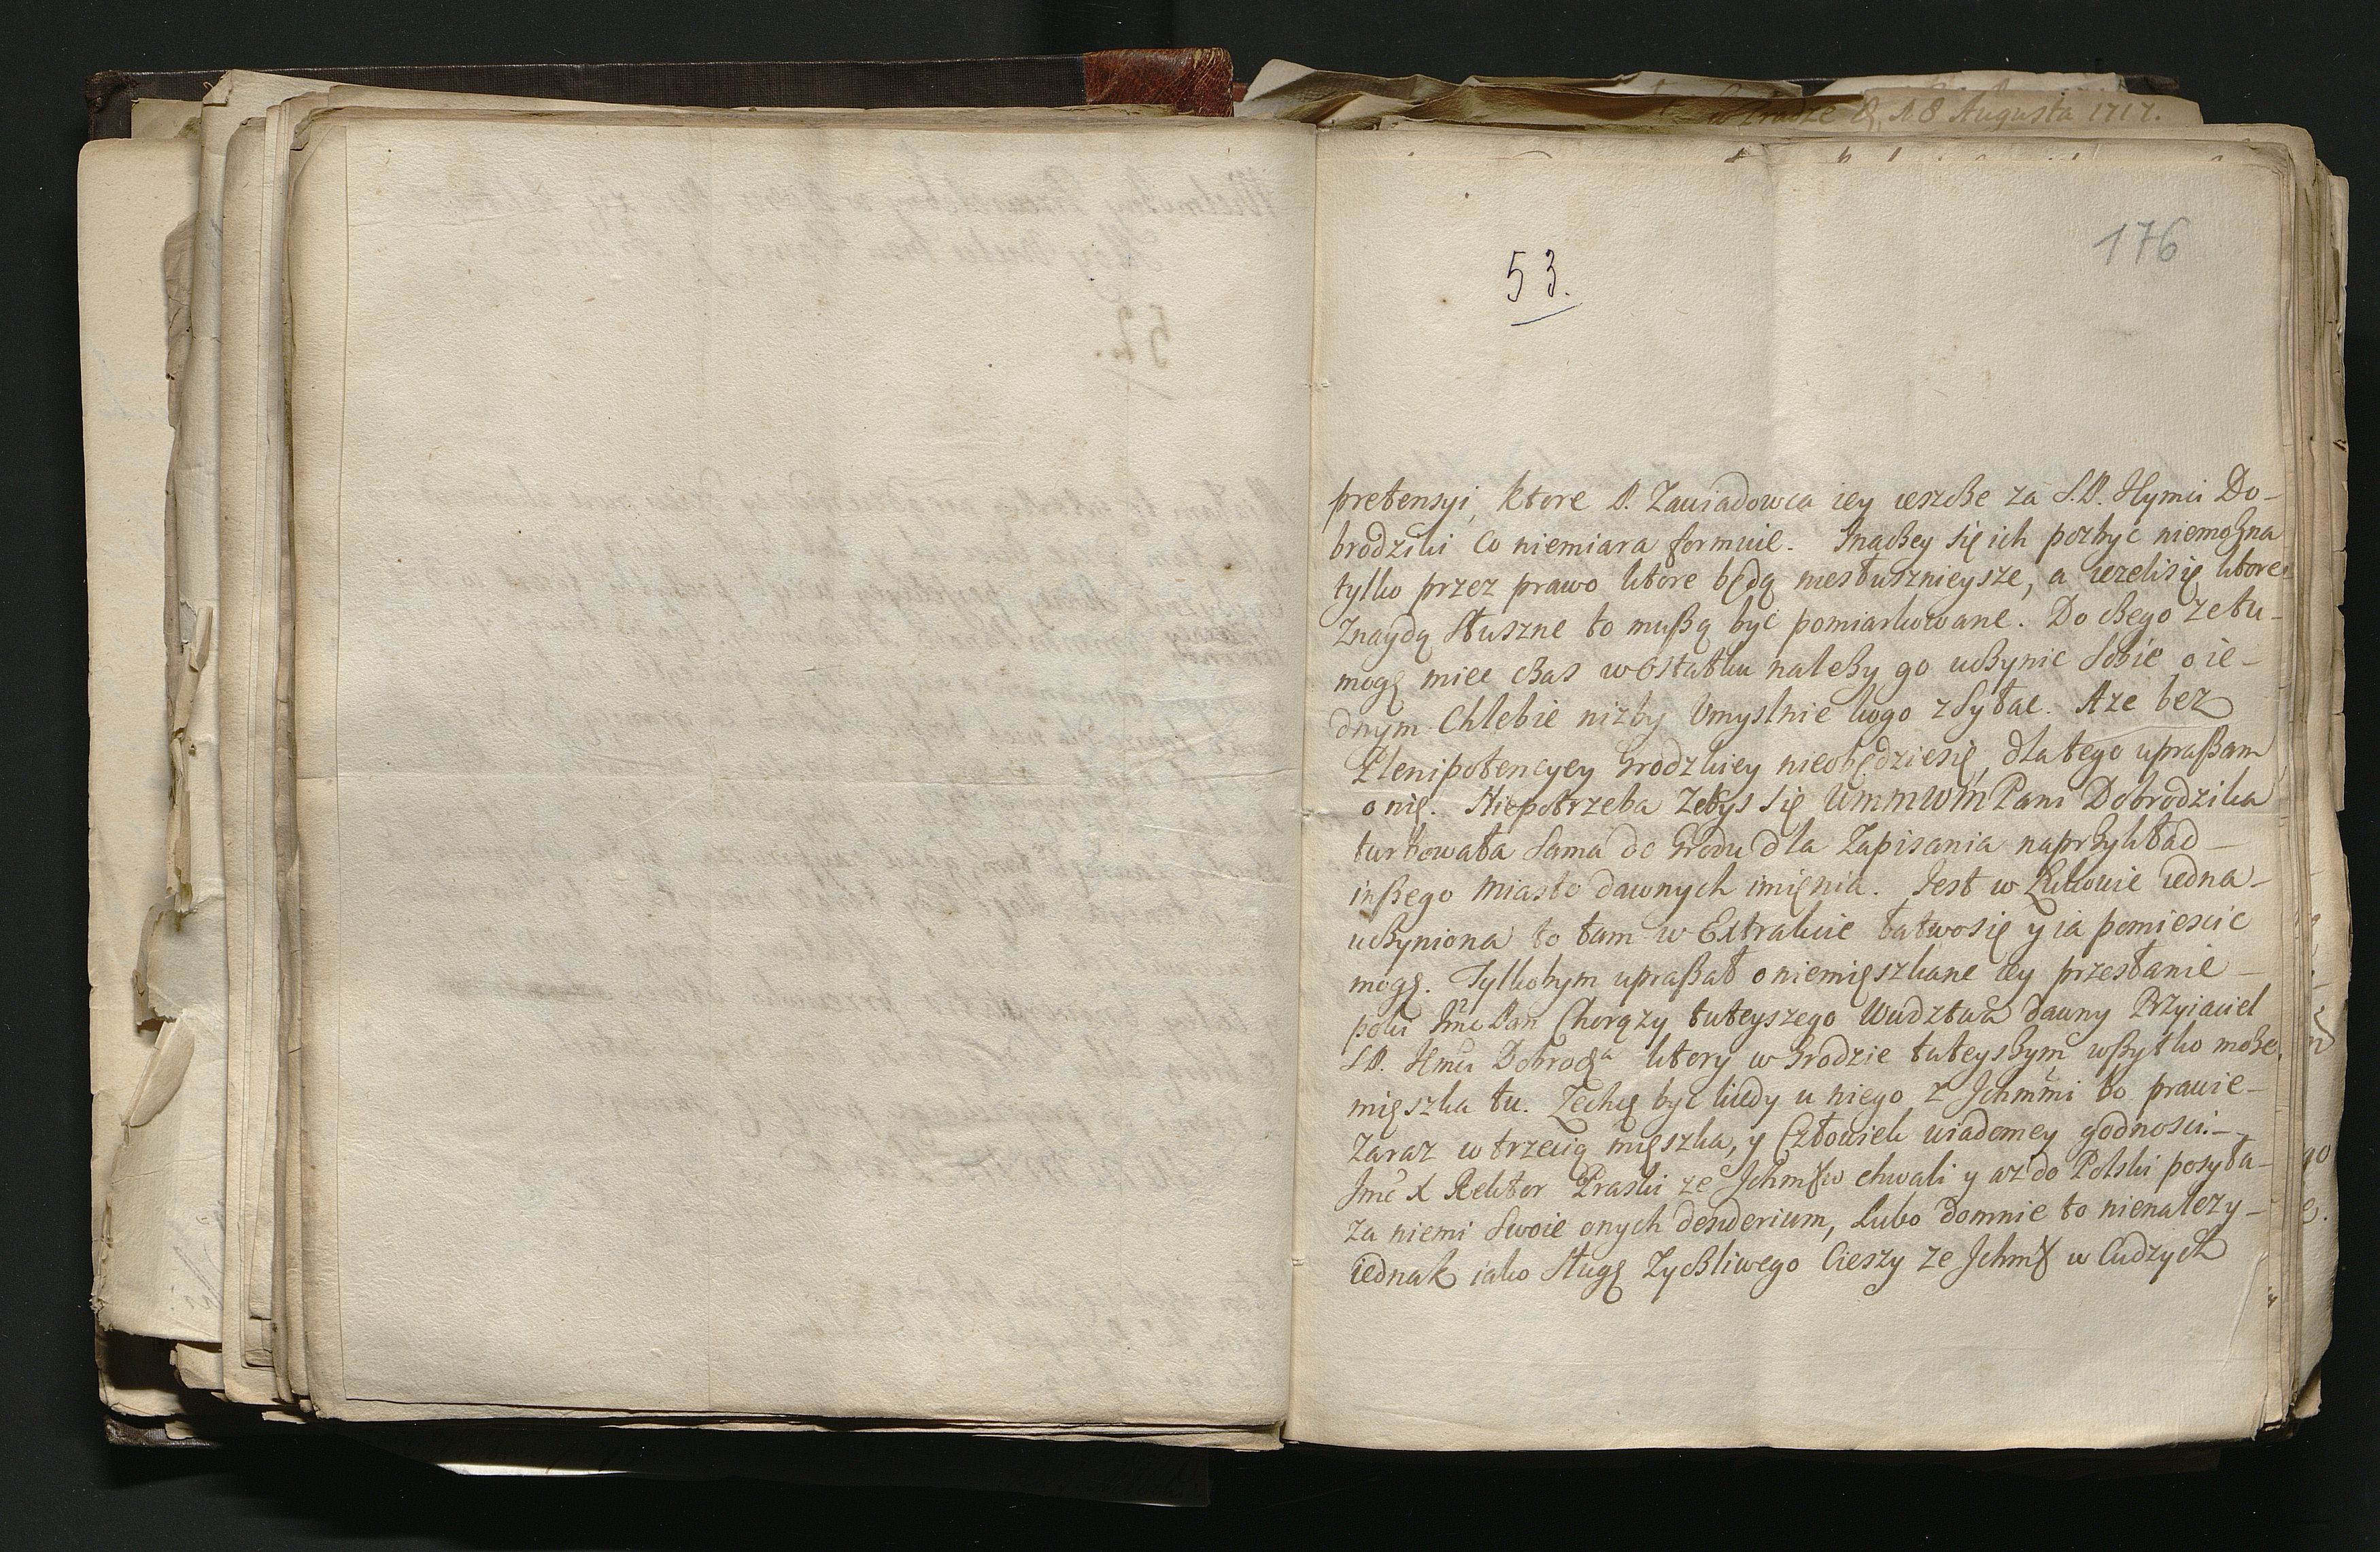 w Pradze d. 8 Augusta 1717.
176
53.
pretensyi, ktore P. Zawiadowca iey ieszcze za S.P. Hymci Do-
brodziki co niemiara formuie. Inaczey się ich pozbyć niemożna
tylko przez prawo ktore będą niesłusznieysze, a ieżelisię ktore
Znaydą Słuszne to mußą być pomiarkowane. Do czego ze tu-
mogę miec czas wostatku należy go uczynic Sobie o ie-
dnym Chlebie nizby Umyslnie kogo zsyłac. Aze bez
Plenipotencyey Grodzkiey nieobędziesię, dlatego upraßam
o nię. Niepotrzeba zebys się WmmWm Pani Dobrodzika
turbowała Sama do Grodu dla Zapisania naprzykład
inßego miasto dawnych imięnia. Jest w Łukowie iedna-
uczyniona to tam w Extrakcie łatwosię y ia pomiescic
mogę. Tylkobym upraßał o niemięszkane iey przesłanie
poki Jmc Pan Chorązy tuteyszego Wudztwa dawny Przyiaciel
S.P. Jmci Dobrodza ktory w Grodzie tuteyszym wßytko może,
mięszka tu. Zechcę być kiedy u niego z Jchmmi bo prawie-
zaraz w trzecią mięszka, y Człowiek wiadomey godnosci.-
Jmc X Rektor Praski ze Jchmw chwali y az do Polski posyła-
za niemi Swoie onych desiderium, Lubo domnie to nienalezy-
iednak iako Sługę Zyczliwego Cieszy ze Jchm w Cudzych